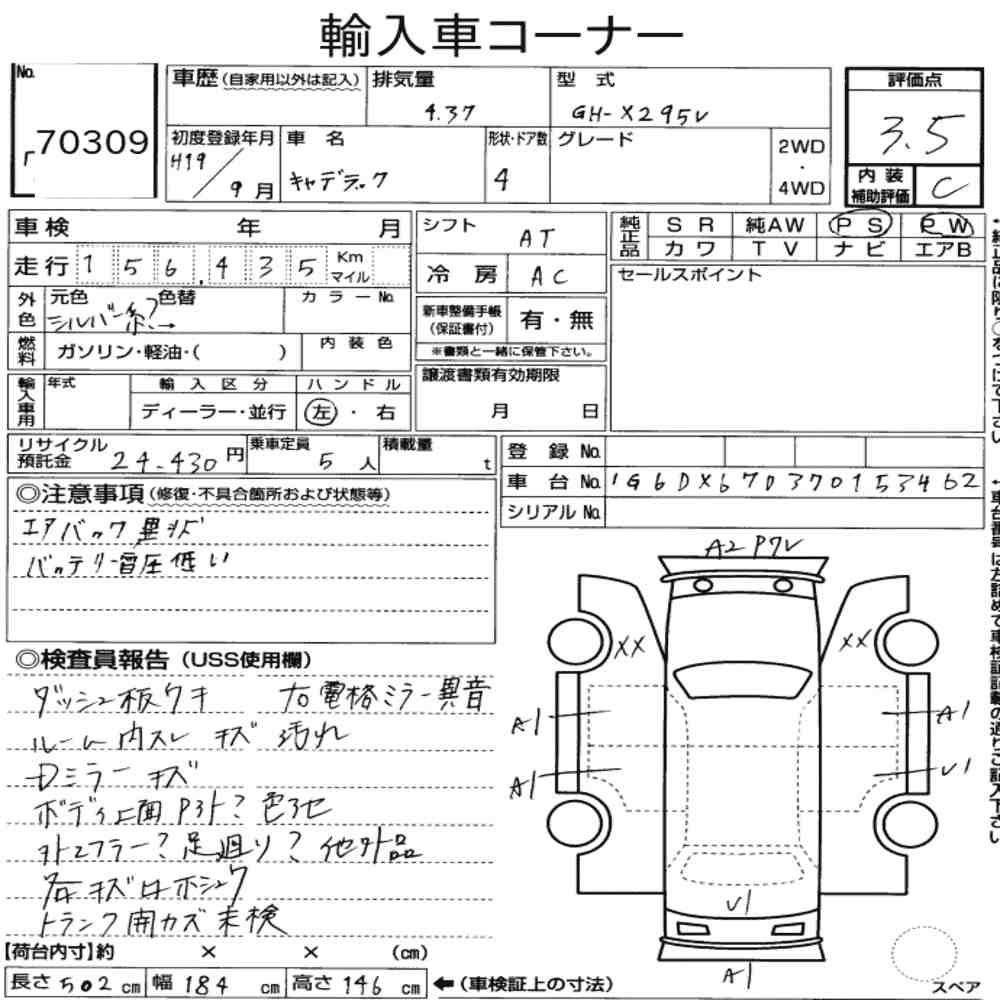 輸入車コーナー
No. 70309
車歴(自家用以外は記入) 排気量 4.37 型式 GH-X295V
評価点 3.5
初度登録年月 H19/9月 車名 キャデラック 形状・ドア数 4 グレード 2WD・4WD
内装補助評価 C
車検 年 月
走行 156,435 Km マイル
シフト AT
冷房 AC
純正品 SR 純AW PS PW
カワ TV ナビ エアB
セールスポイント
外色 元色 シルバー系 色替 カラーNo.
新車整備手帳(保証書付) 有・無
※書類と一緒に保管下さい。
燃料 ガソリン・軽油・( ) 内装色
譲渡書類有効期限
月 日
輸入車用 年式 輸入区分 ハンドル
ディーラー・並行 左・右
リサイクル預託金 24,430円 乗車定員 5人 積載量 t
登録No.
車台No. 1G6DX67D370153462
シリアルNo.
◎注意事項(修復・不具合箇所および状態等)
エアバック異状
バッテリー電圧低い
◎検査員報告(USS使用欄)
ダッシュ板ウキ 右電格ミラー異音
ルーム内スレ キズ 汚れ
Dミラーキズ
ボディ上面 P3ト? 色アセ
マフラー? 足廻り? 他外品
キズ ホシュウ
トランク開カズ 未検
A2 P7V
XX XX
A1 A1
A1 U1
U1
A1
スペア
【荷台内寸】約 × × (cm)
長さ502cm 幅184cm 高さ146cm ←(車検証上の寸法)